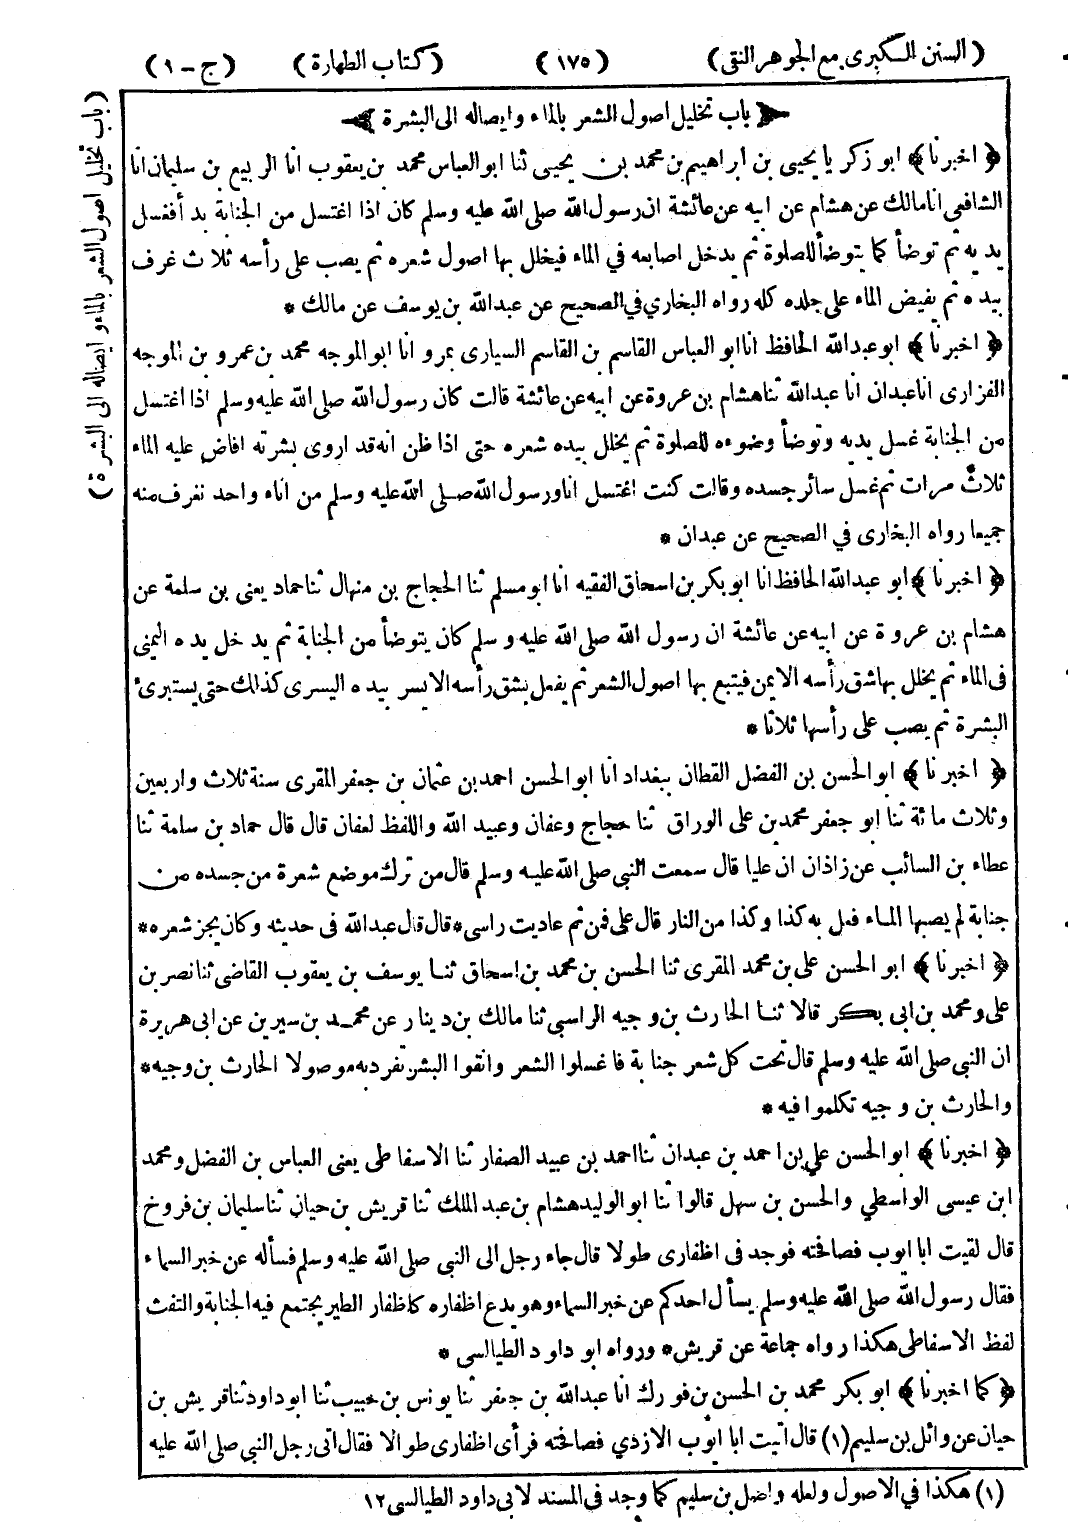 (السنن الكبرى مع الجوهر النقى) (١٧٥) (كتاب الطهارة) (ج - ١)
باب تخليل اصول الشعر بالماء وايصاله الى البشرة
(اخبرنا) ابو زكريا يحيى بن ابراهيم بن محمد بن يحيى ثنا ابو العباس محمد بن يعقوب انا الربيع بن سليمان انا
الشافعى انا مالك عن هشام عن ابيه عن عائشة ان رسول الله صلى الله عليه وسلم كان اذا اغتسل من الجنابة بدأ فغسل
يديه ثم توضأ كما يتوضأ للصلوة ثم يدخل اصابعه في الماء فيخلل بها اصول شعره ثم يصب على رأسه ثلاث غرف
بيده ثم يفيض الماء على جلده كله رواه البخاري في الصحيح عن عبدالله بن يوسف عن مالك *
(اخبرنا) ابو عبدالله الحافظ انا ابو العباس القاسم بن القاسم السيارى بمرو انا ابو الموجه محمد بن عمرو بن الموجه
الفزارى انا عبدان انا عبدالله ثنا هشام بن عروة عن ابيه عن عائشة قالت كان رسول الله صلى الله عليه وسلم اذا اغتسل
من الجنابة غسل يديه وتوضأ وضوءه للصلوة ثم يخلل بيده شعره حتى اذا ظن انه قد اروى بشرته افاض عليه الماء
ثلاث مرات ثم غسل سائر جسده وقالت كنت اغتسل انا ورسول الله صلى الله عليه وسلم من اناء واحد نغرف منه
جميعا رواه البخارى في الصحيح عن عبدان *
(اخبرنا) ابو عبدالله الحافظ انا ابو بكر بن اسحاق الفقيه انا ابو مسلم ثنا الحجاج بن منهال ثنا حماد يعنى بن سلمة عن
هشام بن عروة عن ابيه عن عائشة ان رسول الله صلى الله عليه وسلم كان يتوضأ من الجنابة ثم يدخل يده اليمنى
فى الماء ثم يخلل بها شق رأسه الايمن فيتبع بها اصول الشعر ثم يفعل بشق رأسه الايسر بيده اليسرى كذلك حتى يستبرئ
البشرة ثم يصب على رأسها ثلاثا *
(اخبرنا) ابو الحسن بن الفضل القطان ببغداد انا ابو الحسن احمد بن عثمان بن جعفر المقرى سنة ثلاث واربعين
وثلاث مائة ثنا ابو جعفر محمد بن على الوراق ثنا حجاج وعفان وعبيد الله واللفظ لعفان قال قال حماد بن سلمة ثنا
عطاء بن السائب عن زاذان ان عليا قال سمعت النبى صلى الله عليه وسلم قال من ترك موضع شعرة من جسده من
جنابة لم يصبها الماء فعل به كذا وكذا من النار قال على فمن ثم عاديت راسى * قال قال عبدالله فى حديثه وكان يجز شعره *
(اخبرنا) ابو الحسن على بن محمد المقرى ثنا الحسن بن محمد بن اسحاق ثنا يوسف بن يعقوب القاضى ثنا نصر بن
على ومحمد بن ابى بكر قالا ثنا الحارث بن وجيه الراسبى ثنا مالك بن دينار عن محمد بن سيرين عن ابى هريرة
ان النبى صلى الله عليه وسلم قال تحت كل شعر جنابة فاغسلوا الشعر وانقوا البشر تفرد به موصولا الحارث بن وجيه *
والحارث بن وجيه تكلموا فيه *
(اخبرنا) ابو الحسن على بن احمد بن عبدان ثنا احمد بن عبيد الصفار ثنا الاسفاطى يعنى العباس بن الفضل ومحمد
ابن عيسى الواسطي والحسن بن سهل قالوا ثنا ابو الوليد هشام بن عبد الملك ثنا قريش بن حيان ثنا سليمان بن فروخ
قال لقيت ابا ايوب فصافحته فوجد فى اظفارى طولا قال جاء رجل الى النبى صلى الله عليه وسلم فسأله عن خبر السماء
فقال رسول الله صلى الله عليه وسلم يسأل احدكم عن خبر السماء وهو يدع اظفاره كاظفار الطير يجتمع فيه الجنابة والتفث
لفظ الاسفاطى هكذا رواه جماعة عن قريش * ورواه ابو داود الطيالسى *
(كما اخبرنا) ابو بكر محمد بن الحسن بن فورك انا عبدالله بن جعفر ثنا يونس بن حبيب ثنا ابو داود ثنا قريش بن
حيان عن وائل بن سليم (١) قال اتيت ابا ايوب الازدي فصافحته فرأى اظفارى طوالا فقال اتى رجل النبى صلى الله عليه
(١) هكذا في الاصول ولعله واصل بن سليم كما وجد فى المسند لابى داود الطيالسى ١٢
(باب تخليل اصول الشعر بالماء وايصاله الى البشرة)